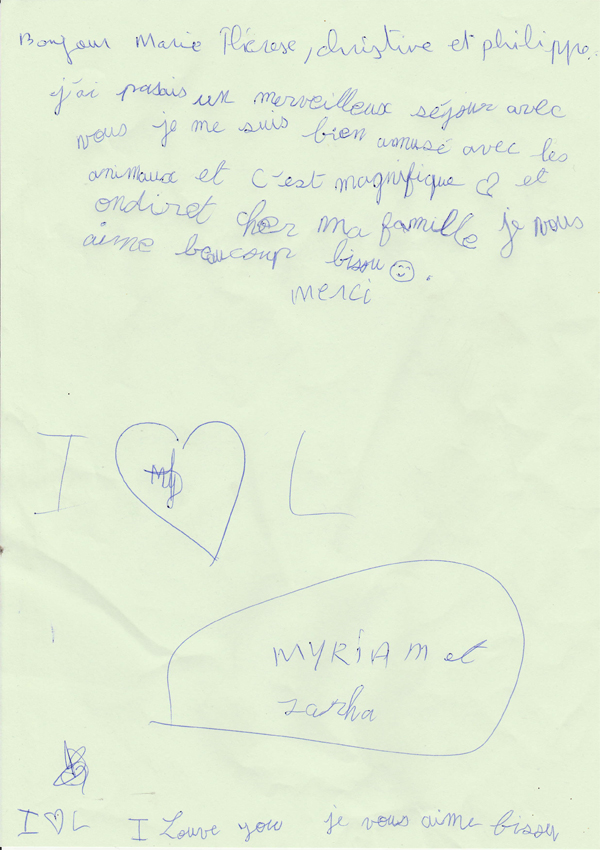 Bonjour Marie Thérese, christive et philippe.
j'ai passais un merveilleux séjour avec
vous je me suis bien amusé avec les
animaux et c'est magnifique ♡ et
ondiret cher ma famille je vous
aime beaucoup bisou ☺.
merci
I ♡ L
MYRIAM et
zarha
I ♡ L I Louve you je vous aime bisou